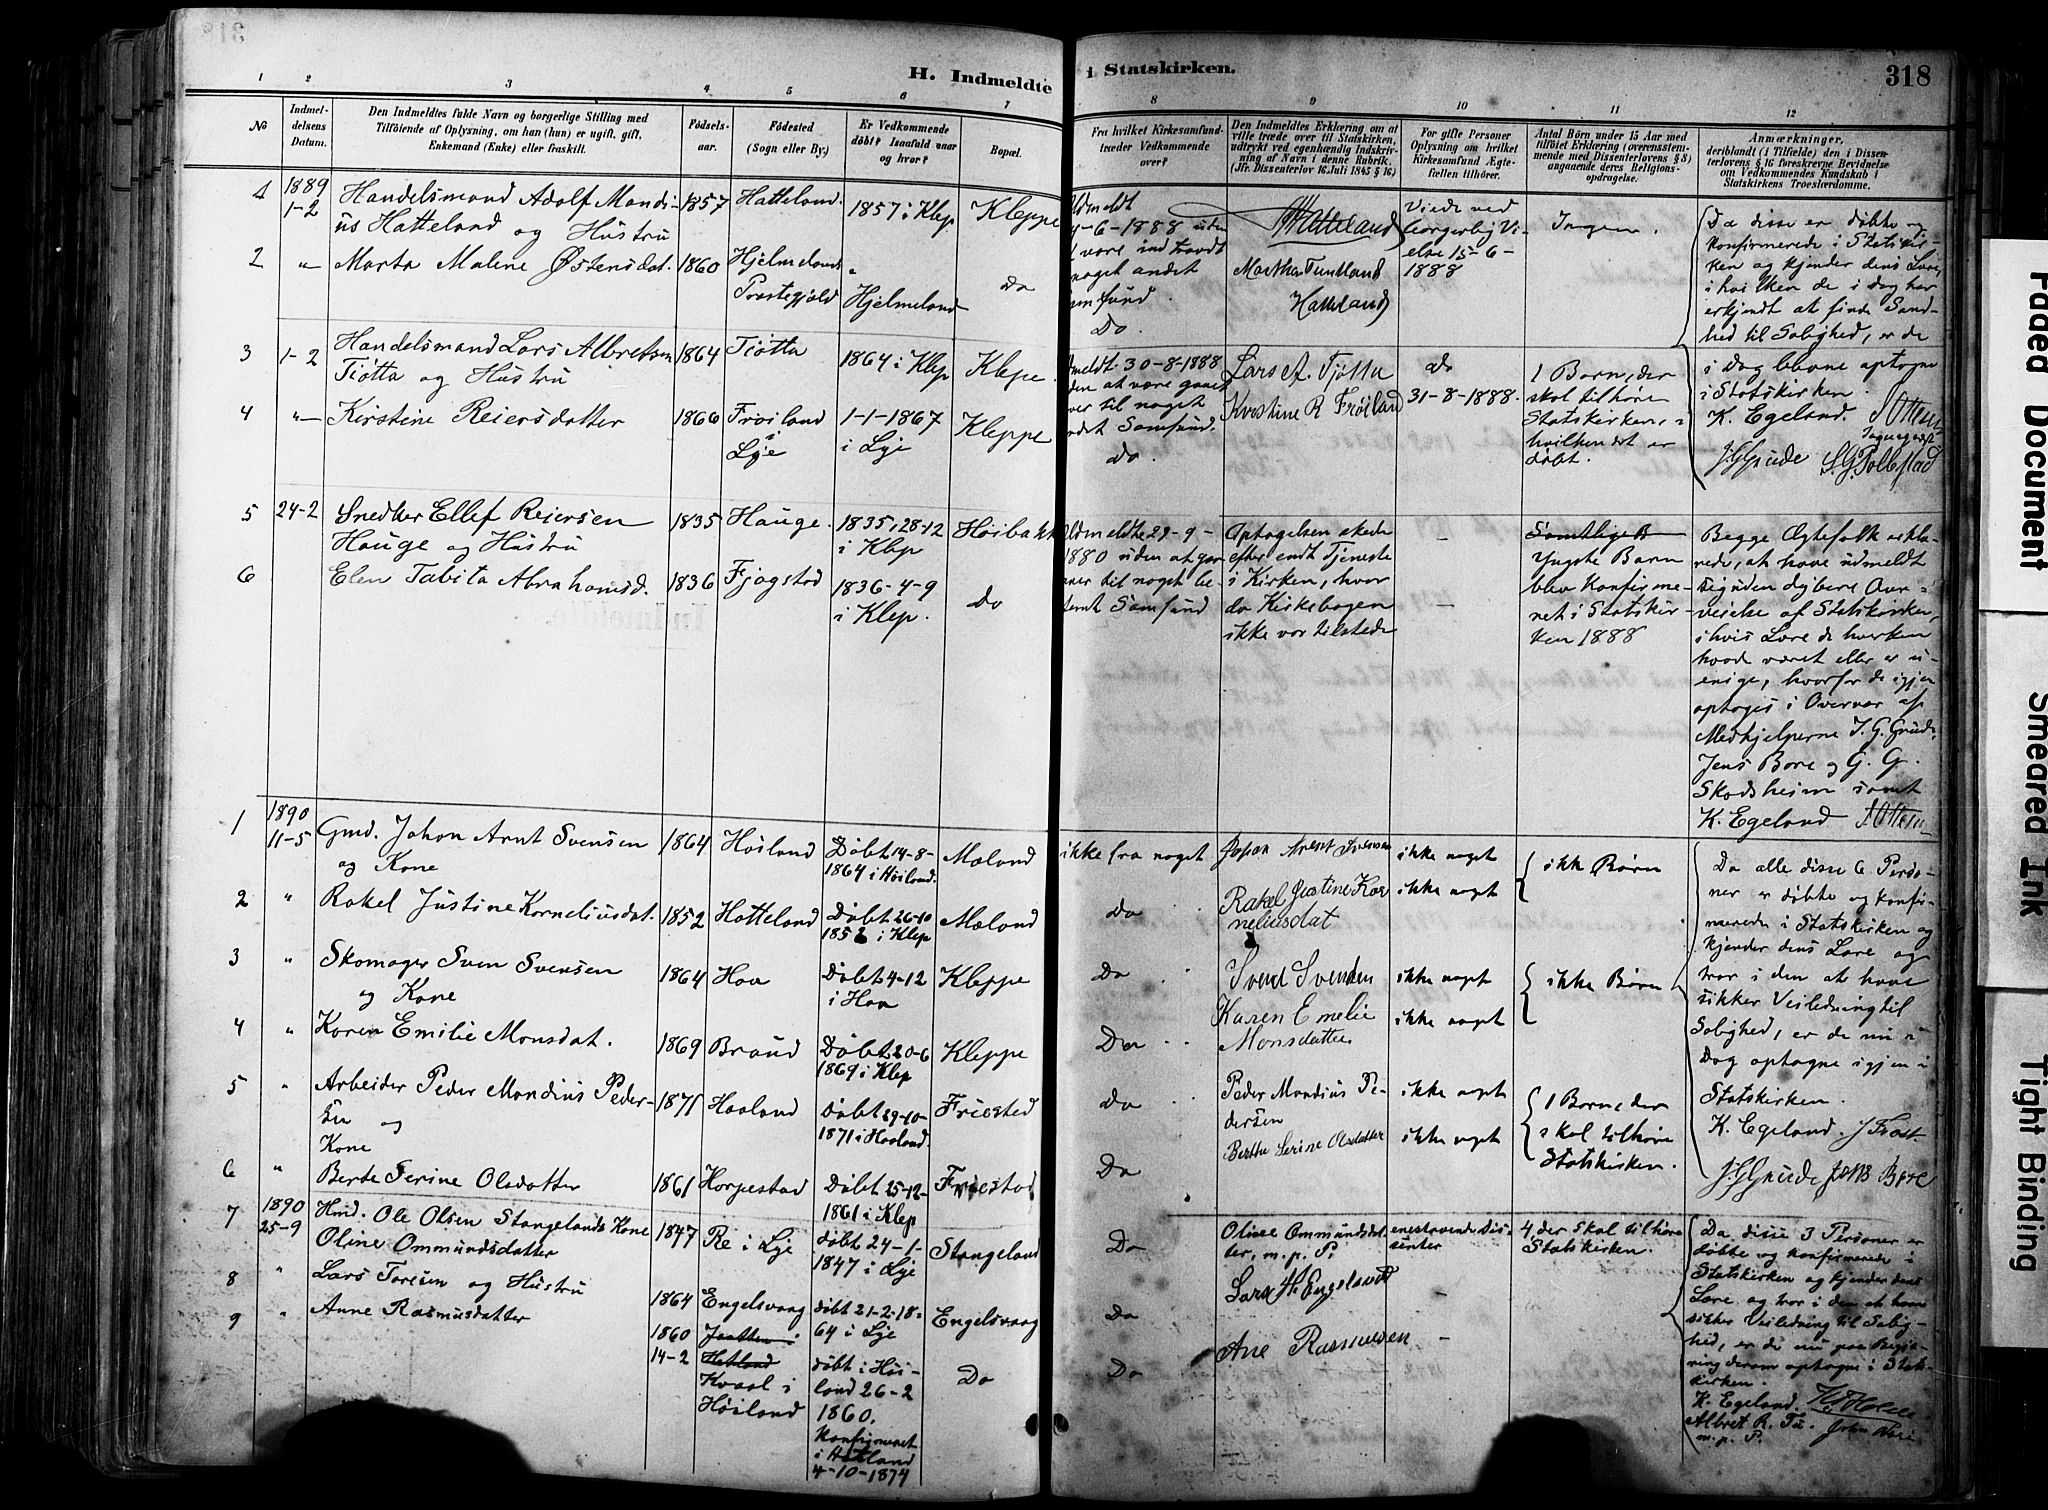 H. Indmeldte i Statskirken.
318
1 2 3 4 5 6 7 8 9 10 11 12
No
Indmel-
delsens
Datum.
Den Indmeldtes fulde Navn og borgerlige Stilling med
Tilføiende af Oplysning, om han (hun) er ugift, gift,
Enkemand (Enke) eller fraskilt.
Fødsels-
aar.
Fødested
(Sogn eller By.)
Er Vedkommende
døbt? Isaafald naar
og hvor?
Bopæl.
Fra hvilket Kirkesamfund
træder Vedkommende
over?
Den Indmeldtes Erklæring om at
ville træde over til Statskirken,
udtrykt ved egenhændig Indskriv-
ning af Navn i denne Rubrik.
(Jfr. Dissenterlov 16. Juli 1845 § 16.)
For gifte Personer
Oplysning om hvilket
Kirkesamfund Ægte-
fællen tilhører.
Antal Børn under 15 Aar med
tilføiet Erklæring (overensstem-
mende med Dissenterlovens § 8)
angaaende deres Religions-
opdragelse.
Anmærkninger,
deriblandt (i Tilfælde) den i Dissen-
terlovens § 16 foreskrevne Bevidnelse
om Vedkommendes Kundskab i
Statskirkens Troeslærdomme.
1 1889
1-2
Handelsmand Adolf Mandi-
us Hatteland og Hustru
1857 Hatteland 1857 i Klep Kleppe
Udmeldt
-6-1888 uden
at være indtraadt
noget andet
Samfund.
Hatteland
Viede ved
borgerlig Vi-
else 15-6-
1888
Ingen.
2 " Marta Malene Østensdat. 1860 Hjelmelands
Præstegjeld
"
Hjelmeland
Do
Do.
Martha Tuntland
Hatteland
Da disse er døbte og
konfirmerede i Statskir-
ken og kjender dens Lære,
i hvilken de i dag har
erkjendt at finde Sand-
hed til Salighed, er de
i Dag blevne optagne
i Statskirken.
K. Egeland.
J.G. Grude
3 1-2 Handelsmand Lars Albretsen
Tiøtta og Hustru
1864 Tiøtta 1864 i Klep Kleppe.
Udmeldt 30-8-1888
uden at være gaaet
over til noget
andet Samfund.
Lars A. Tjøtta
Do
31-8-1888.
1 Barn, der
skal tilhøre
Statskirken, i
hvilken det er
døbt.
4 " Kirstine Reiersdatter 1866 Frøiland
i
Lye
1-1-1867
i Lye
Kleppe
Do.
Kirstine R Frøiland
5 24-2 Snedker Ellef Reiersen
Hauge og Hustru
1835 Hauge. 1835, 28-12
i Klep
Høibakk
Udmeldte 29-9-
1880 uden at gaa
over til noget be-
stemt Samfund
Optagelsen skede
efter endt Tjeneste
i Kirken, hvor
da Kirkebogen
ikke var tilstede
-
Samtlige B
Yngste Barn
blev konfirme-
ret i Statskir-
ken 1888
6 Elen Tabita Abrahamsd. 1836 Fjogstad 1836-4-9
i Klep.
Do
-
Begge Ægtefolk erklæ-
rede, at have udmeldt
sig uden dybere Over-
veielse af Statskirken,
i hvis Lære de hverken
havde været eller er u-
enige, hvorfor de igjen
optoges i Overvær af
Medhjelperne J. G. Grude,
Jens Bore og G. G.
Skadsheim samt
K. Egeland
1 1890
11-5
Gmd. Johan Arnt Svensen
og Kone
1864 Høiland Døbt 14-8-
1864 i Høiland.
Mæland
ikke fra noget
Johan Arent Svensen
ikke noget
ikke Børn
2 " Rakel Justine Korneliusdat. 1852 Hatteland Døbt 26-10
1852 i Klep
Mæland
Do
Rakel Justine Kor
neliusdat
ikke noget
3 " Skomager Sven Svensen
og Kone
1864 Haa Døbt 4-12
i Haa
Kleppe
Do
Svend Svendsen
ikke noget
ikke Børn
4 " Karen Emilie Monsdat. 1869 Braud Døbt 20-6
1869 i Klep
Kleppe
Do
Karen Emelie
Monsdatter
ikke noget
5 " Arbeider Peder Mandius Peder-
sen og
Kone
1871 Haaland Døbt 29-10-
1871 i Haaland.
Friested
Do
Peder Mandius Pe-
dersen
ikke noget
1 Barn, der
skal tilhøre
Statskirken.
6 " Berte Serine Olsdatter 1861 Horpestad Døbt 25-12-
1861 i Klep
Friestad
Do
Berthe Serine Olsdatter
ikke noget
Da alle disse 6 Perso-
ner er døbte og konfir-
merede i Statskirken og
kjender dens Lære og
tror i den at have
sikker Veiledning til
Salighed, er de nu i
Dag optagne igjen i
Statskirken.
K. Egeland.
J.G. Grude Jens Bore
7 1890
25-9
Hmd. Ole Olsen Stangelands Kone
Oline Ommundsdatter
1847 Re i Lye døbt 24-1-
1847 i Lye
Stangeland
Do
Oline Ommundsdat
ter, m. p. P.
enestaaende Dis-
senter
4, der skal tilhøre
Statskirken.
8 " Lars Toresen og Hustru
1864 Engelsvaag døbt 21-2-18-
64 i Lye
Engelsvaag
Do
Lars H. Engelsvaa
-
9 " Anne Rasmusdatter
1860
14-2
Jaatten i
Hetland
Kvaal i
Høiland
døbt i Høi-
land 26-2
1860.
Konfirmeret
i Hetland
4-10-1874
Do
Do
Ane Rasmusen
-
Da disse 3 Personer er
døbte og konfirmerede i
Statskirken og kjender dens
Lære og tror i den at have
sikker Veiledning til Salig-
hed, er de nu paa Begjæ-
ring derom optagne i Stats-
kirken.
K. Egeland.
Albret R. Tu.
m. p. P.
John Bore
Faded Document
Smeared Ink
Tight Binding